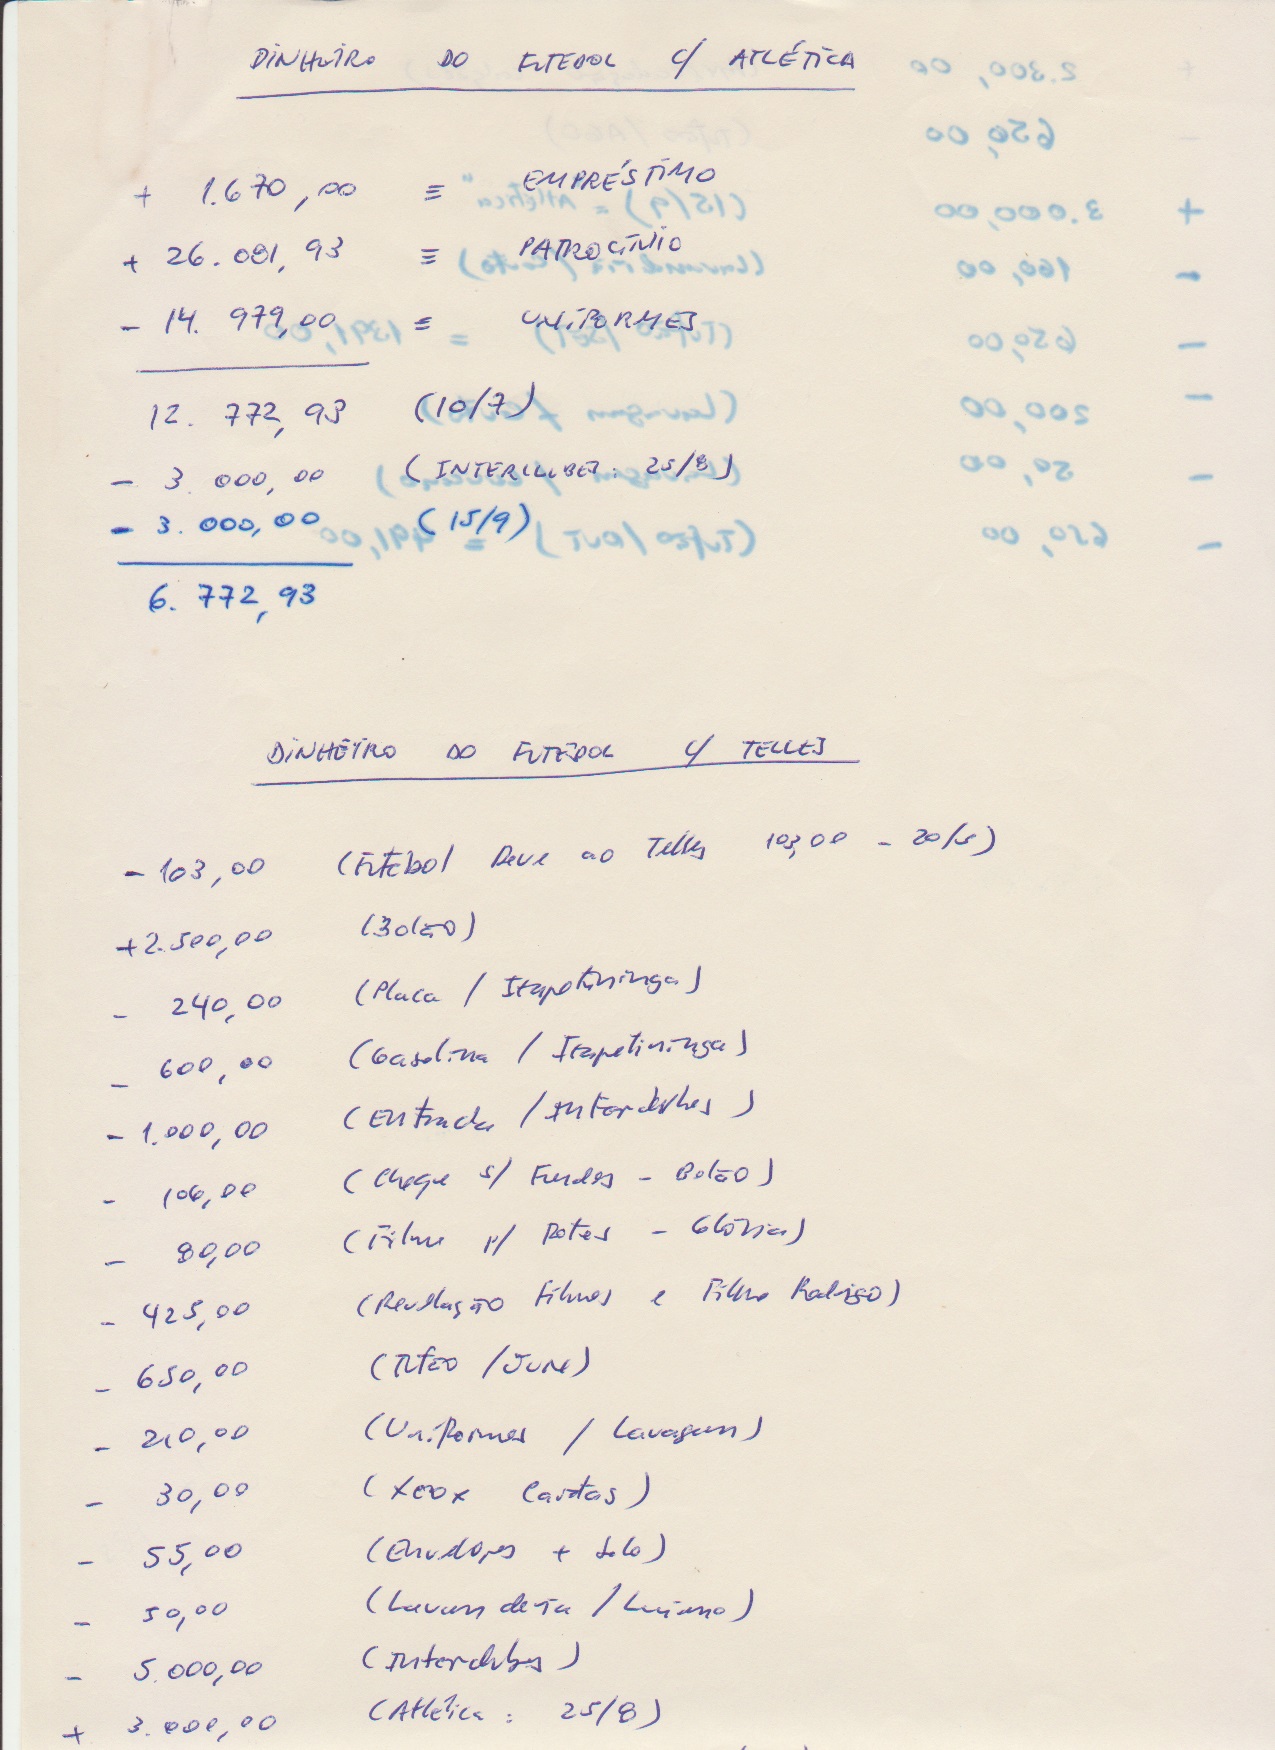 DINHEIRO DO FUTEBOL C/ ATLÉTICA
+ 1.670,00 ≡ EMPRÉSTIMO
+ 26.081,93 ≡ PATROCÍNIO
- 14.979,00 ≡ UNIFORMES
12.772,93 (10/7)
- 3.000,00 (INTERCLUBES: 25/8)
- 3.000,00 (15/9)
6.772,93
DINHEIRO DO FUTEBOL C/ TELLES
- 103,00 (Futebol Deve ao Telles 103,00 - 20/5)
+2.500,00 (Bolão)
- 240,00 (Placa / Itapetininga)
- 600,00 (Gasolina / Itapetininga)
- 1.000,00 (Entrada / Interclubes)
- 106,00 (Cheque s/ Fundos - Bolão)
- 80,00 (Filme p/ - Glória)
- 425,00 (Revelação Filmes e Filme Rodrigo)
- 650,00 (Tufão / June)
- 210,00 (Uniformes / Lavagem)
- 30,00 (Xerox Cartas)
- 55,00 (Envelopes + Selo)
- 50,00 (Lavanderia / Luciano)
- 5.000,00 (Interclubes)
+ 3.000,00 (Atlética: 25/8)